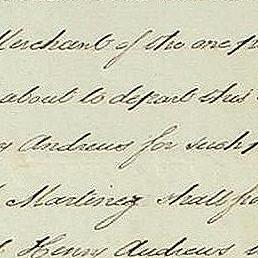 Merchant of the one p
about to depart this
y Andrews for such
Martinez shall
Henry Andrews